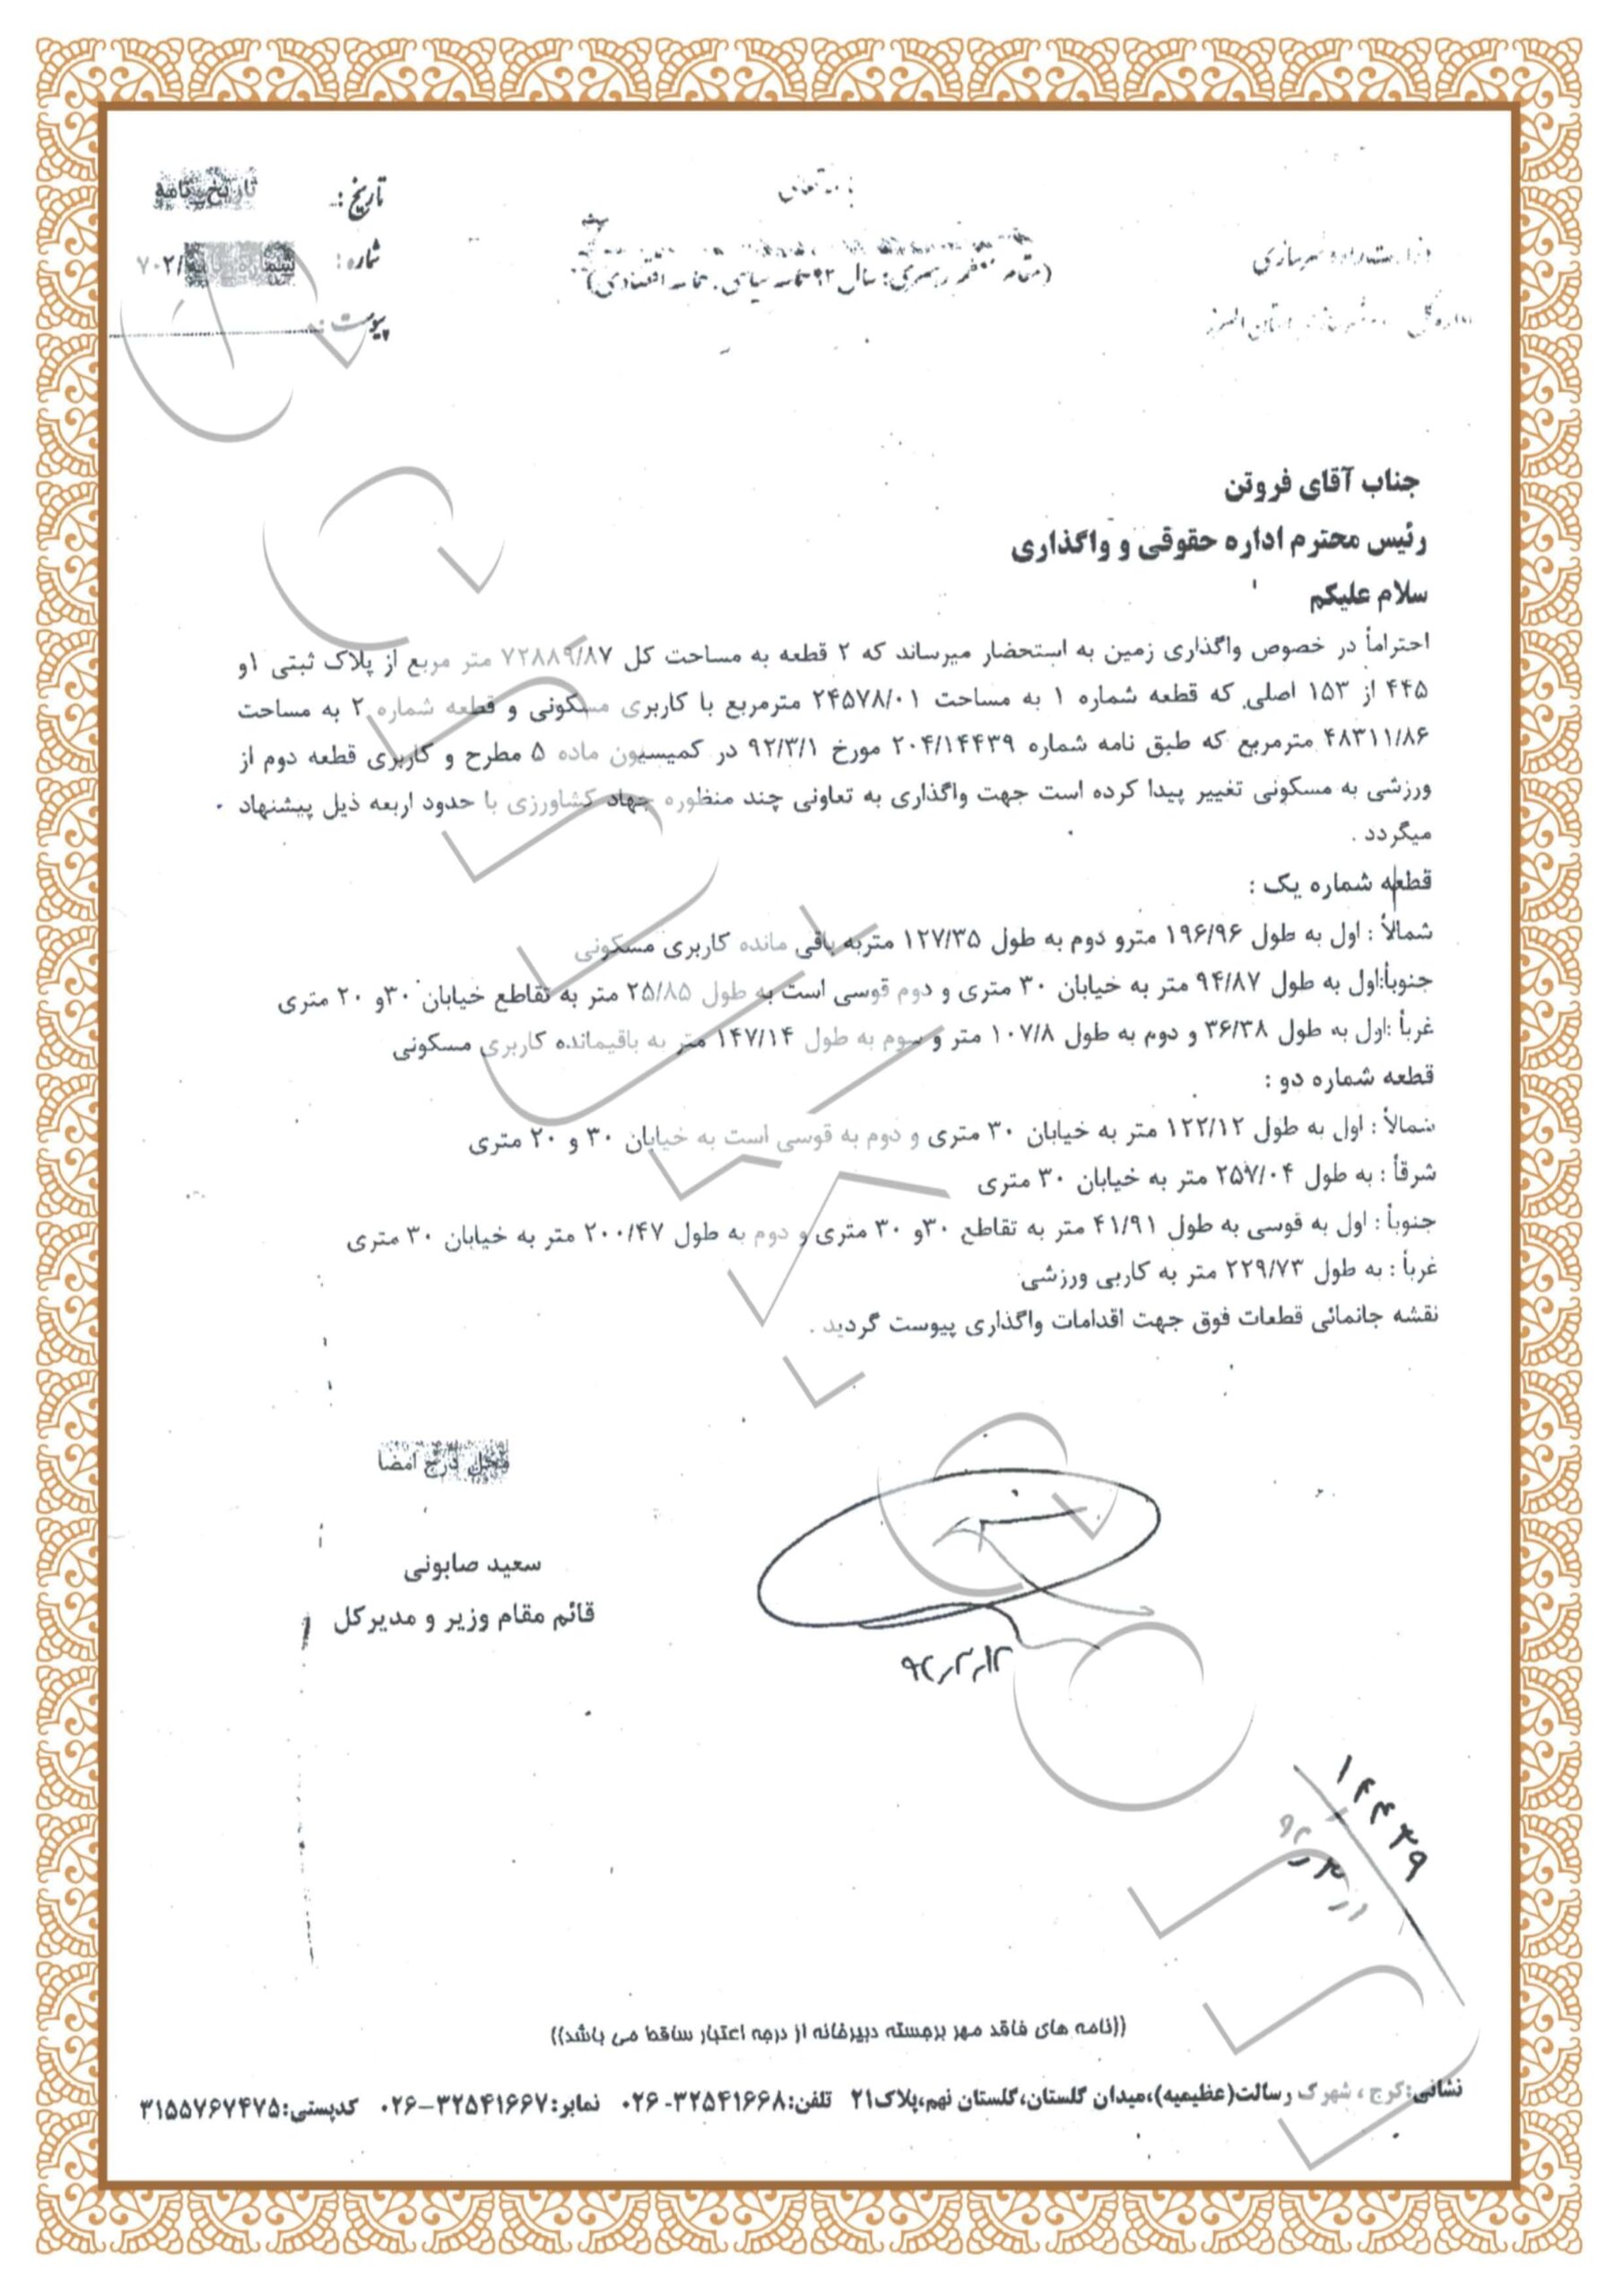 تاریخ: تاریخ نامه
شماره: شماره نامه/۷۰۲
پیوست:
(مقام معظم رهبری: سال ۹۲ حماسه سیاسی، حماسه اقتصادی)
وزارت راه و شهرسازی
اداره کل راه و شهرسازی استان البرز
جناب آقای فروتن
رئیس محترم اداره حقوقی و واگذاری
سلام علیکم
احتراماً در خصوص واگذاری زمین به استحضار میرساند که ۲ قطعه به مساحت کل ۷۲۸۸۹/۸۷ متر مربع از پلاک ثبتی ۱و
۴۴۵ از ۱۵۳ اصلی که قطعه شماره ۱ به مساحت ۲۴۵۷۸/۰۱ مترمربع با کاربری مسکونی و قطعه شماره ۲ به مساحت
۴۸۳۱۱/۸۶ مترمربع که طبق نامه شماره ۲۰۴/۱۴۴۳۹ مورخ ۹۲/۳/۱ در کمیسیون ماده ۵ مطرح و کاربری قطعه دوم از
ورزشی به مسکونی تغییر پیدا کرده است جهت واگذاری به تعاونی چند منظوره جهاد کشاورزی با حدود اربعه ذیل پیشنهاد
میگردد .
قطعه شماره یک :
شمالاً : اول به طول ۱۹۶/۹۶ مترو دوم به طول ۱۲۷/۳۵ متربه باقی مانده کاربری مسکونی
جنوباً:اول به طول ۹۴/۸۷ متر به خیابان ۳۰ متری و دوم قوسی است به طول ۲۵/۸۵ متر به تقاطع خیابان ۳۰و ۲۰ متری
غرباً :اول به طول ۳۶/۳۸ و دوم به طول ۱۰۷/۸ متر و سوم به طول ۱۴۷/۱۴ متر به باقیمانده کاربری مسکونی
قطعه شماره دو :
شمالاً : اول به طول ۱۲۲/۱۲ متر به خیابان ۳۰ متری و دوم به قوسی است به خیابان ۳۰ و ۲۰ متری
شرقاً : به طول ۲۵۷/۰۴ متر به خیابان ۳۰ متری
جنوباً : اول به قوسی به طول ۴۱/۹۱ متر به تقاطع ۳۰و ۳۰ متری و دوم به طول ۲۰۰/۴۷ متر به خیابان ۳۰ متری
غرباً : به طول ۲۲۹/۷۳ متر به کاربی ورزشی
نقشه جانمائی قطعات فوق جهت اقدامات واگذاری پیوست گردید .
محل درج امضا
سعید صابونی
قائم مقام وزیر و مدیرکل
۹۲/۳/۱۲
۱۴۴۳۹
۹۲/۳/۱
((نامه های فاقد مهر برجسته دبیرخانه از درجه اعتبار ساقط می باشد))
نشانی:کرج ، شهرک رسالت(عظیمیه)،میدان گلستان،گلستان نهم،پلاک۲۱ تلفن:۳۲۵۴۱۶۶۸-۰۲۶ نمابر:۳۲۵۴۱۶۶۷–۰۲۶ کدپستی:۳۱۵۵۷۶۷۴۷۵